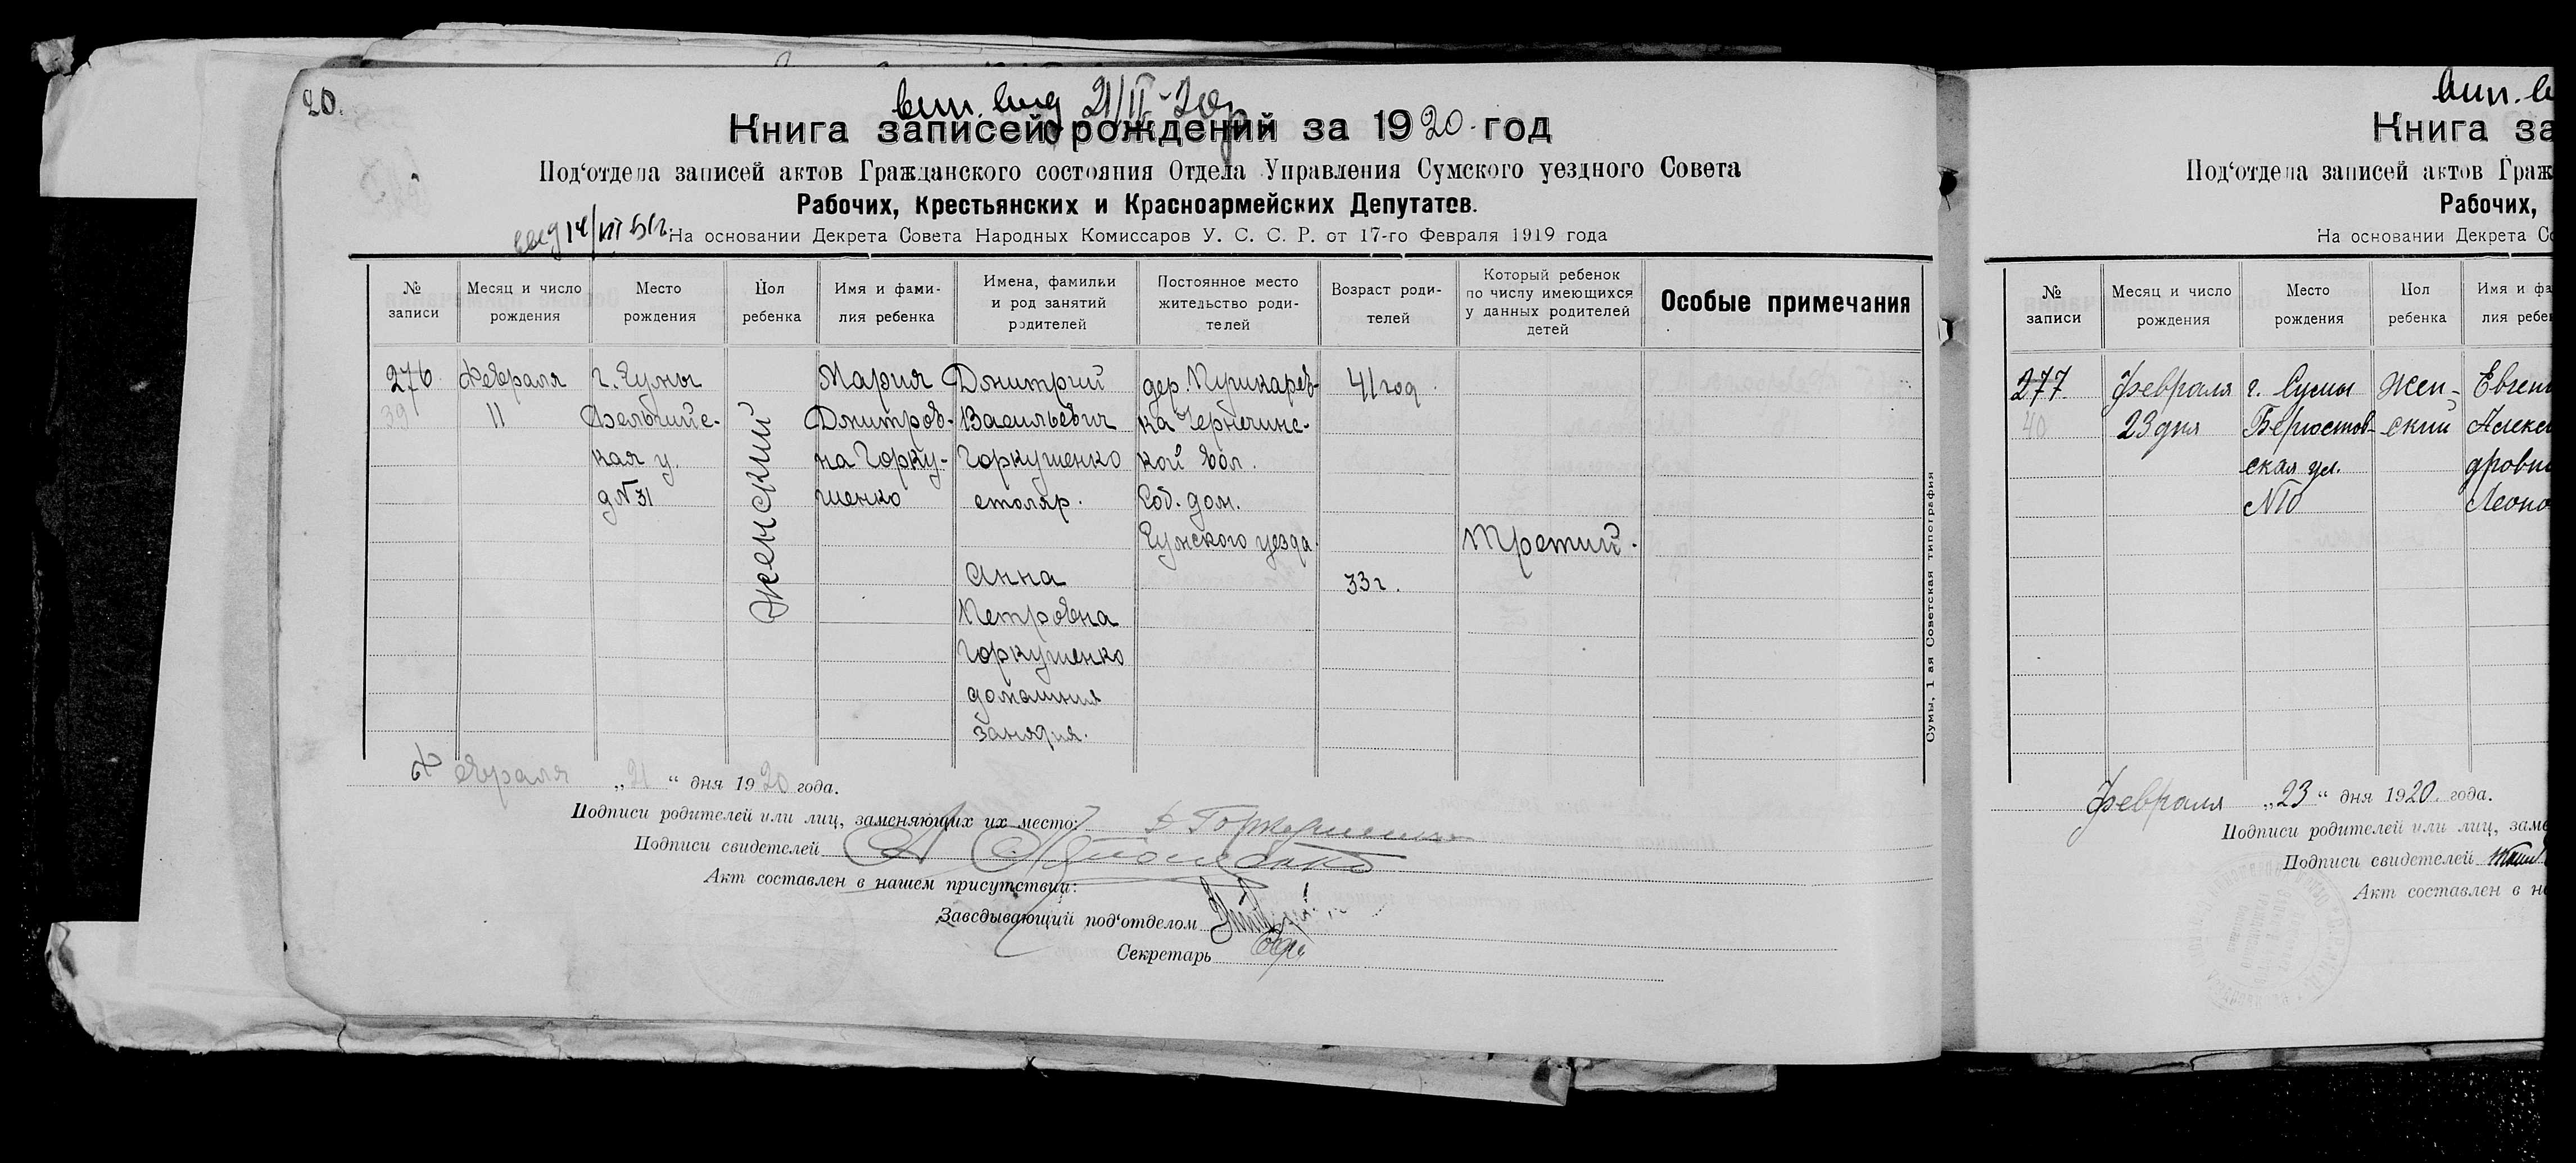 20.
вып. вид 21/II-20г
Книга записей рождений за 1920. год
Под‘отдела записей актов Гражданского состояния Отдела Управления Сумского уездного Совета
Рабочих, Крестьянских и Красноармейских Депутатов.
На основании Декрета Совета Народных Комиссаров У. С. С. Р. от 17-го Февраля 1919 года
№ записи
Месяц и число рождения
Место рождения
Пол ребенка
Имя и фами-
лия ребенка
Имена, фамилии
и род занятий
родителей
Постоянное место
жительство роди-
телей
Возраст роди-
телей
Который ребенок
по числу имеющихся
у данных родителей
детей
Особые примечания
276
39
Февраля
11
г. Сумы
кая у.
д № 31
женский
Мария
Дмитров-
на Горку-
шенко
Дмитрий
Васильевич
Горкушенко
столяр.
Анна
Петровна
Горкушенко
домашния
занятия.
дер. Пушкарев-
ка Чернечинс-
кой вол.
Соб. дом.
Сумского уезда.
41 год
33 г.
Третий.
Февраля „21“ дня 1920 года.
Подписи родителей или лиц, заменяющих их место: Д Горкушенко
Подписи свидетелей
Акт составлен в нашем присутствии:
Заведывающий под‘отделом
Секретарь
Сумы, 1 ая Советская типография
вып. в
Книга за
Под‘отдела записей актов Граж
Рабочих,
На основании Декрета Со
№ записи
Месяц и число рождения
Место рождения
Пол ребенка
Имя и фа
лия ребен
277
40
февраля
23 дня
г. Сумы
Берестов-
ская ул.
№10
Жен-
ский
Евген
Алекса
дровн
Леоно
февраля „23“ дня 1920. года.
Подписи родителей или лиц, заме
Подписи свидетелей
Акт составлен в не